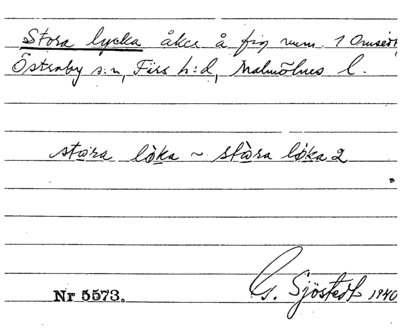 Stora lycka åker å fig num. 1 Onseröd,
Östraby s:n, Färs h:d, Malmöhus l.
stora løka ~ stòra løka 2
Nr 5573.
G. Sjöstedt 1940